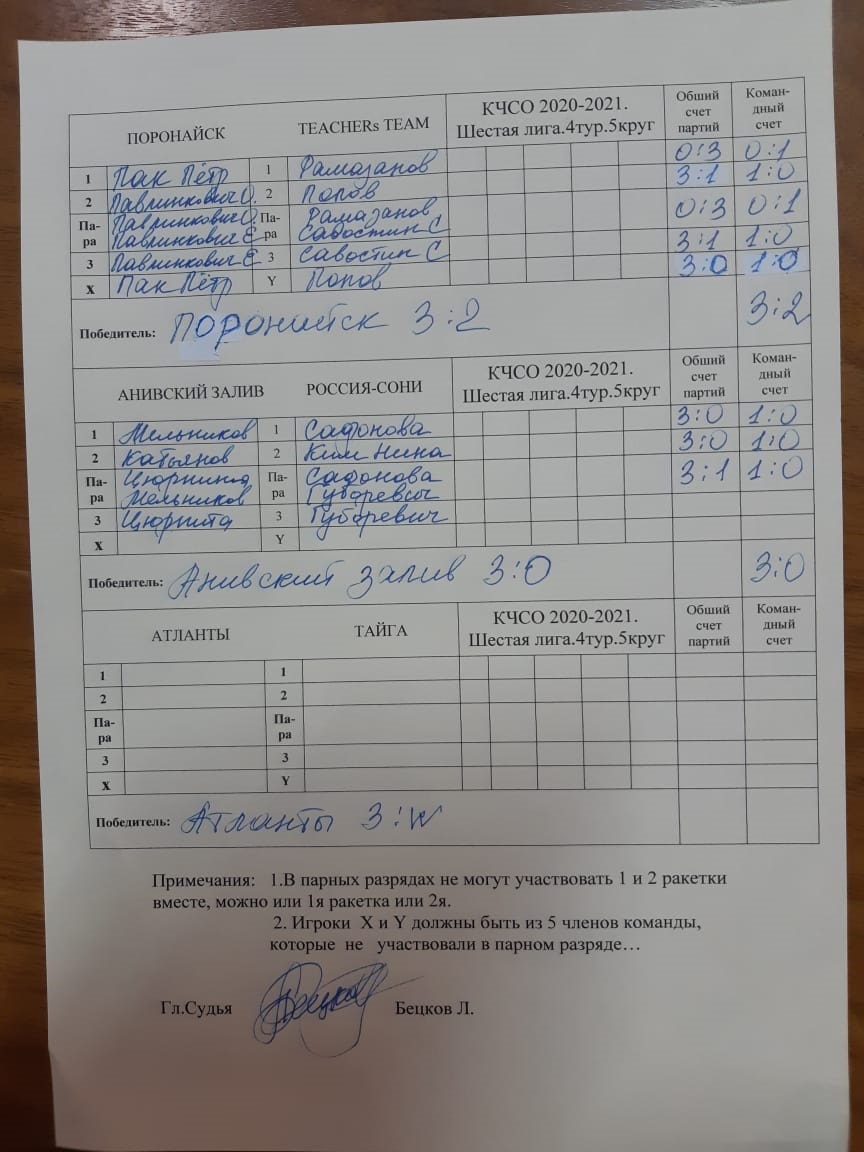 ПОРОНАЙСК TEACHERs TEAM КЧСО 2020-2021. Шестая лига.4тур.5круг Обший счет партий Коман-дный счет
1 Пак Пётр 1 Рамазанов 0:3 0:1
2 Павлинкович О. 2 Попов 3:1 1:0
Па-ра Павлинкович О. Па-ра Рамазанов 0:3 0:1
Павлинкович Е Савостин С
3 Павлинкович Е 3 Савостин С 3:1 1:0
X Пак Пётр Y Попов 3:0 1:0
Победитель: Поронайск 3:2 3:2
АНИВСКИЙ ЗАЛИВ РОССИЯ-СОНИ КЧСО 2020-2021. Шестая лига.4тур.5круг Обший счет партий Коман-дный счет
1 Мельников 1 Сафонова 3:0 1:0
2 Катьянов 2 Ким Нина 3:0 1:0
Па-ра Па-ра Сафонова 3:1 1:0
Мельников Губаревич
3 3 Губаревич
X Y
Победитель: Анивский залив 3:0 3:0
АТЛАНТЫ ТАЙГА КЧСО 2020-2021. Шестая лига.4тур.5круг Обший счет партий Коман-дный счет
1 1
2 2
Па-ра Па-ра
3 3
X Y
Победитель: Атланты 3:W
Примечания: 1.В парных разрядах не могут участвовать 1 и 2 ракетки
вместе, можно или 1я ракетка или 2я.
2. Игроки X и Y должны быть из 5 членов команды,
которые не участвовали в парном разряде…
Гл.Судья Бецков Л.